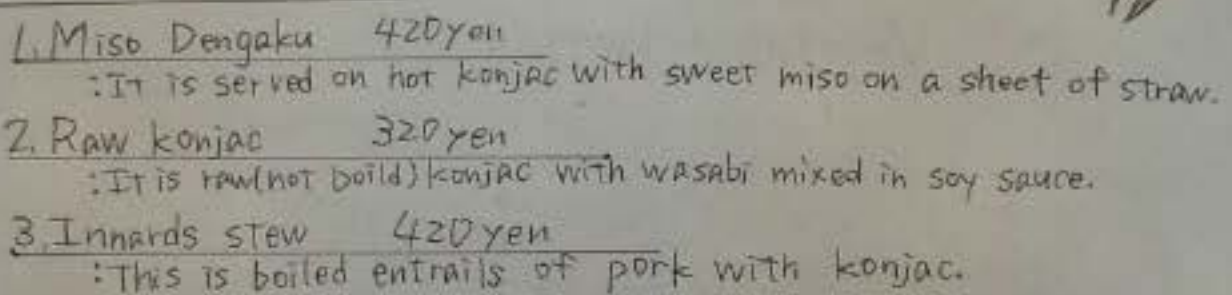 1. Miso Dengaku 420yen
:It is served on hot konjac with sweet miso on a sheet of straw.
2. Raw konjac 320yen
:It is raw(not boild) konjac with wasabi mixed in soy sauce.
3. Innards stew 420yen
:This is boiled entrails of pork with konjac.